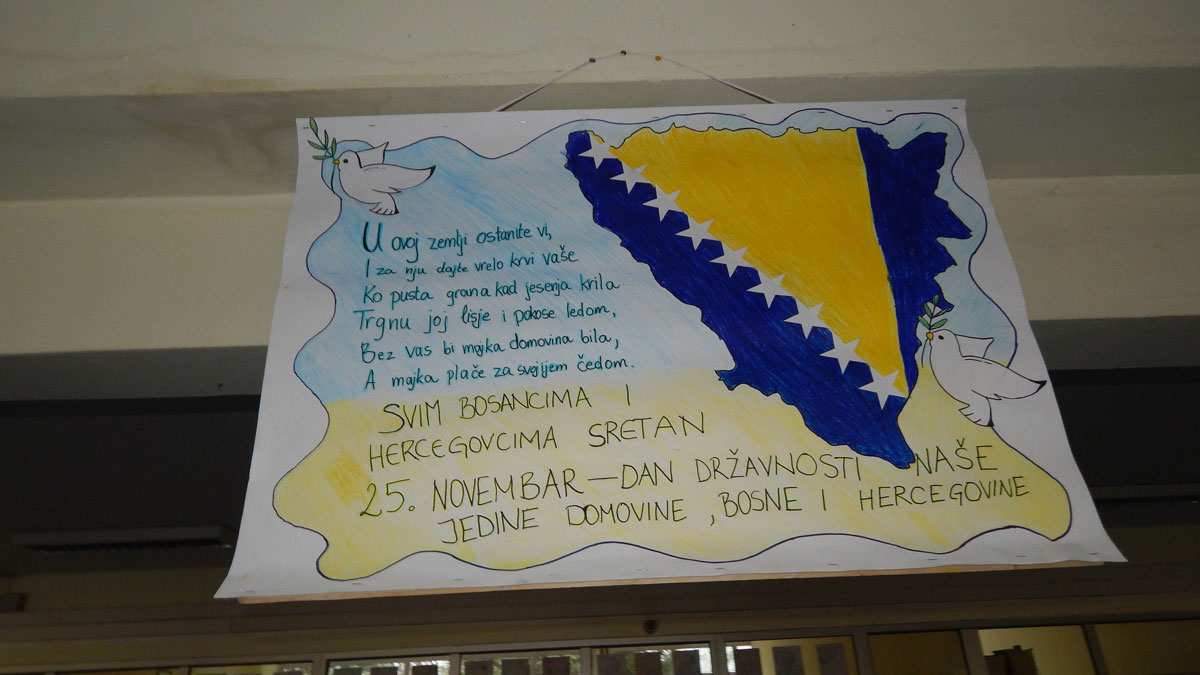 U ovoj zemlji ostanite vi,
I za nju dajte vrelo krvi vaše
Ko pusta grana kad jesenja krila
Trgnu joj lisje i pokose ledom,
Bez vas bi majka domovina bila,
A majka plače za svojijem čedom.
SVIM BOSANCIMA I
HERCEGOVCIMA SRETAN
25. NOVEMBAR — DAN DRŽAVNOSTI NAŠE
JEDINE DOMOVINE, BOSNE I HERCEGOVINE